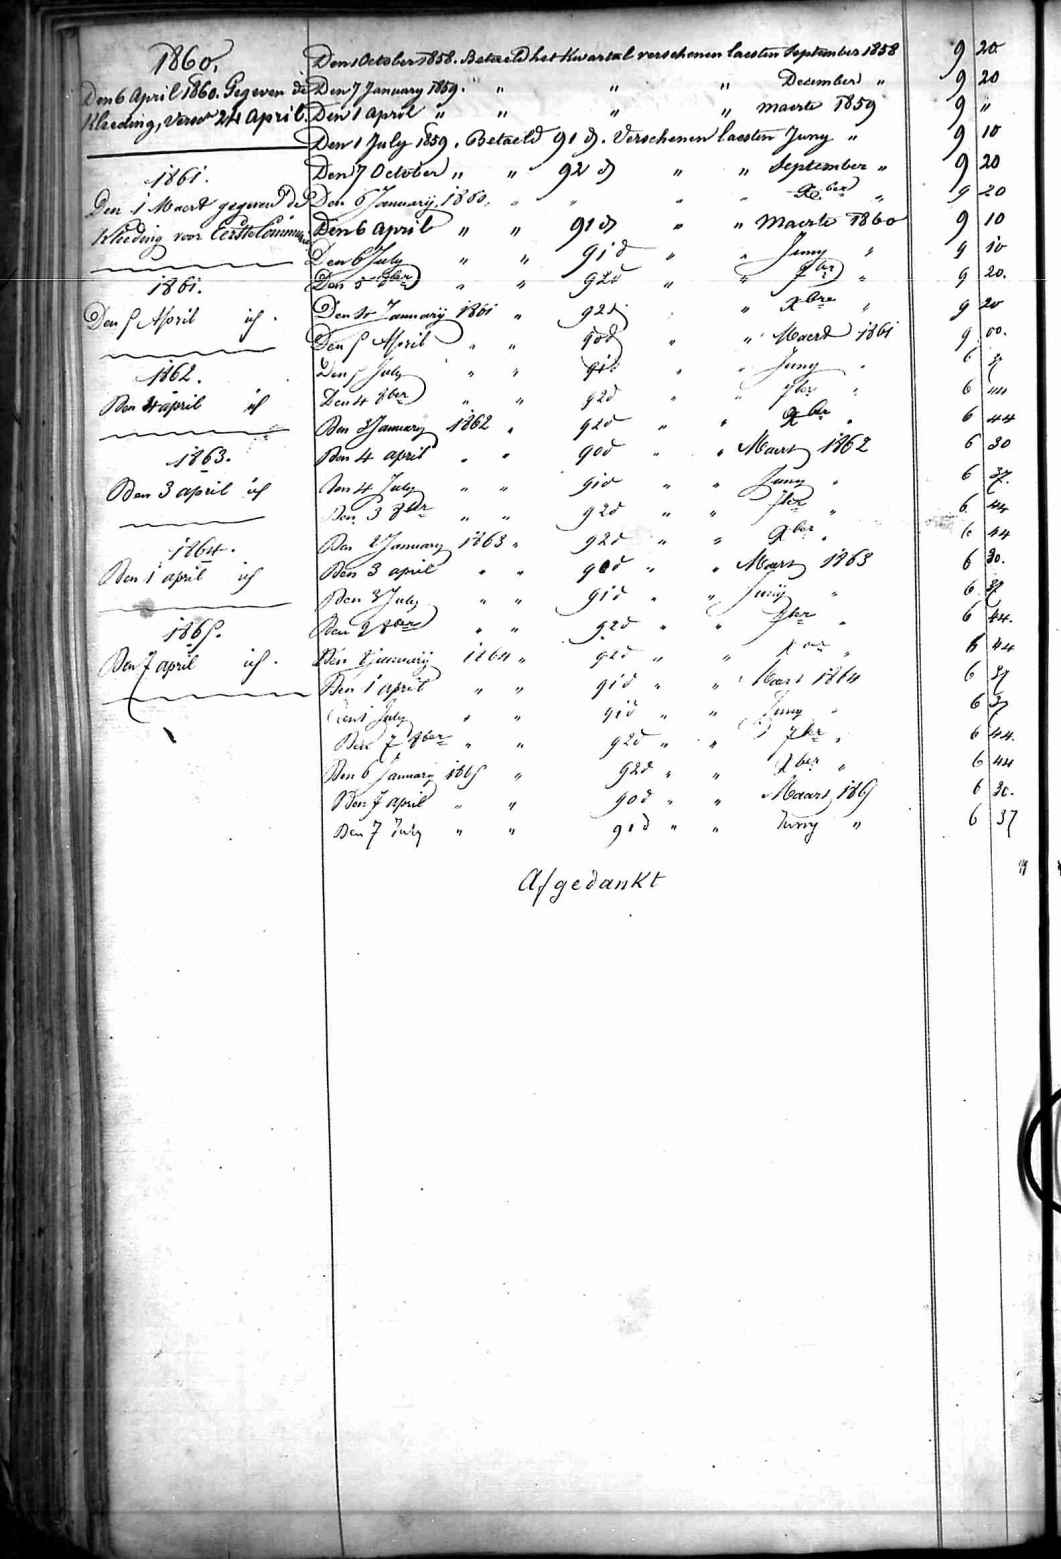 1860.
Den 6 April 1860. Gegeven de
Kleeding, Verso 24 april.
1861.
Den 1 Maert gegeven de
Kleeding voor Eerste Commun
1861.
Den 5 April id.
1862.
Den 4 april id
1863.
Den 3 april id
1864.
Den 1 april id
1865.
Den 7 april id.
Den 1 October 1858. Betaeld het Kwartal verschenen laesten September 1858 9 20
Den 7 January 1859. " " " December " 9 20
Den 1 April " " " " maerte 1859 9 "
Den 1 July 1859. Betaeld 91 d. Verschenen laesten Juny " 9 10
Den 7 October " " 92 d " " September " 9 20
Den 6 January, 1860. " " " " Xber " 9 20
Den 6 April " " 91 d " " Maerte 1860 9 10
Den 6 July " " 91 d " " Juny " 9 10
Den 5 8ber " " 92 d " " 7ber " 9 20.
Den 10 Januarij 1861 " 92 d " " Xbre " 9 20
Den 5 April " " 90 d " " Maert 1861 9 00.
Den 5 July " " 91 d " " Juny " 6 37
Den 4 8ber " " 92 d " " 7ber " 6 44
Den 3 January 1862 " 92 d " " Xber " 6 44
Den 4 april " " 90 d " " Maert 1862 6 30
Den 4 July " " 91 d " " Juny " 6 37.
Den 3 8ber " " 92 d " " 7ber " 6 44
Den 2 January 1863 " 92 d " " Xber " 6 44
Den 3 april " " 90 d " " Maert 1863 6 30.
Den 3 July " " 91 d " " Junij " 6 37
Den 2 8ber " " 92 d " " 7ber " 6 44.
Den januarij 1864 " 92 d " " Xber " 6 44
Den 1 april " " 91 d " " Maert 1864 6 37
Den 1 July " " 91 d " " Juny " 6 37
Den 7 8ber " " 92 d " " 7ber " 6 44.
Den 6 January 1865 " 92 d " " Xber " 6 44
Den 7 april " " 90 d " " Maart 1865 6 30.
Den 7 July " " 91 d " " Juny " 6 37
Afgedankt